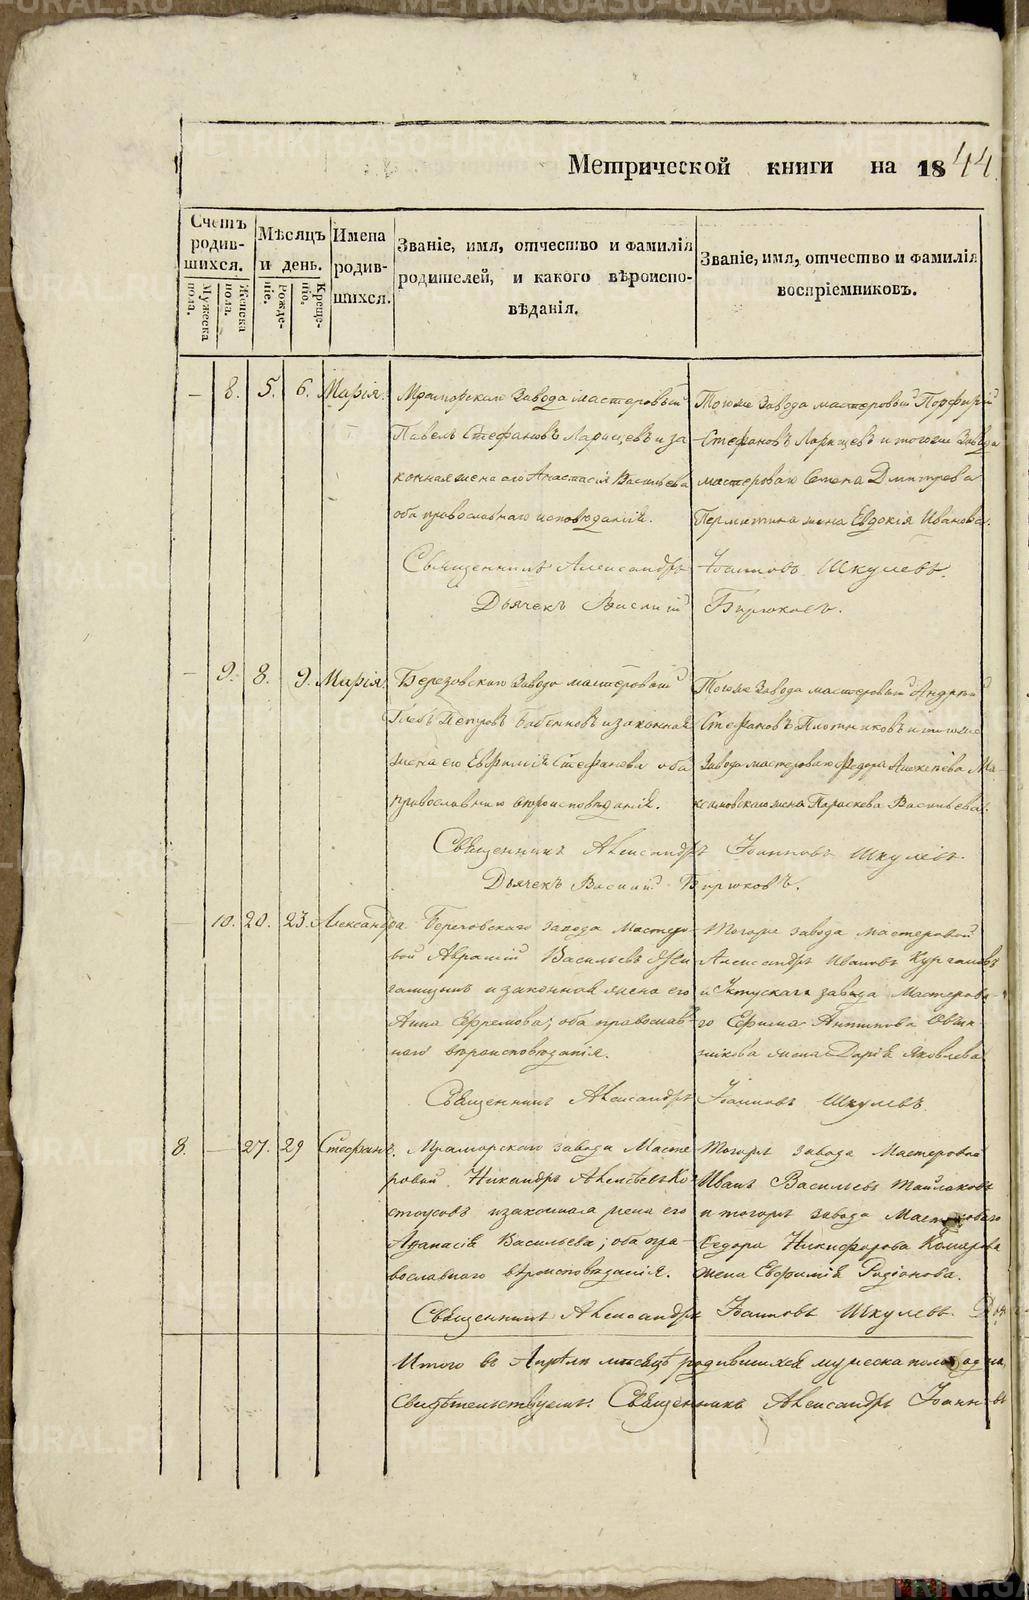 Метрической книги на 1844.
Счетъ родившихся.
Мужеска пола.
Женска пола.
Мѣсяцъ и день.
Рожденіе.
Крещеніе.
Имена родившихся.
Званіе, имя, отчество и фамилія
родителей, и какого вѣроиспо-
вѣданія.
Званіе, имя, отчество и фамилія
воспріемниковъ.
— 8. 5. 6. Марія.
Мраморскаго Завода мастеровый
Павелъ Стефановъ Ларицевъ и за
конная жена его Анастасія Васильева
оба православнаго исповѣданія.
Тогоже Завода мастеровый Порфирій
Стефановъ Ларицевъ и тогоже Завода
мастероваго Семена Дмитрева
жена Евдокія Иванова.
Священникъ Александръ Іоанновъ Шкулевъ.
Дьячекъ Василій Бирюковъ.
— 9. 8. 9. Марія.
Березовскаго Завода мастеровый
Глебъ Петровъ и законная
жена его Евфимія Стефанова оба
православнаго вѣроисповѣданія.
Тогоже Завода мастеровый Андрей
Стефановъ Плотниковъ и тогоже
Завода мастероваго Федора Алексѣева
жена Параскева Васильева.
Священникъ Александръ Іоанновъ Шкулевъ.
Дьячекъ Василій Бирюковъ.
— 10. 20. 23. Александра
завода Мастеро-
вой Аврамій Васильевъ
и законная жена его
Анна Ефремова; оба православ-
наго вѣроисповѣданія.
Тогоже завода мастеровой
Александръ Ивановъ Кургановъ
и Уктускаго завода Мастерова-
го Ефима Антипова Овчин-
никова жена Дарія Яковлева
Священникъ Александръ Іоанновъ Шкулевъ
8. — 27. 29 Стефанъ.
Мраморскаго завода Масте
ровой Никандръ Алексѣевъ Ко-
стоусовъ и законная жена его
Афанасія Васильева; оба пра-
вославнаго вѣроисповѣданія.
Тогоже завода Мастеровой
Иванъ Васильевъ
и тогоже завода Мастероваго
Федора Никифорова Комарова
жена Евфимія Родіонова.
Священникъ Александръ Іоанновъ Шкулевъ
Итого въ Апрѣлѣ мѣсяцѣ родившихся мужеска пола
свидѣтельствуемъ. Священникъ Александръ Іоанновъ
METRIKI.GASO-URAL.RU